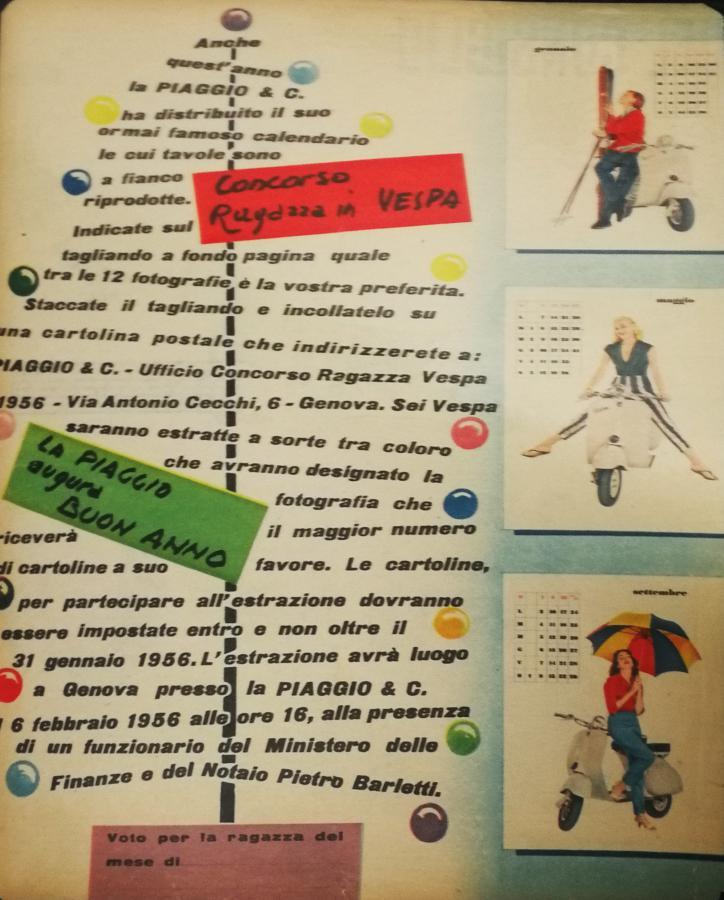 Anche
quest'anno
la PIAGGIO & C.
ha distribuito il suo
ormai famoso calendario
le cui tavole sono
a fianco
riprodotte.
Concorso
Ragazza in VESPA
Indicate sul
tagliando a fondo pagina quale
tra le 12 fotografie è la vostra preferita.
Staccate il tagliando e incollatelo su
una cartolina postale che indirizzerete a:
PIAGGIO & C. - Ufficio Concorso Ragazza Vespa
1956 - Via Antonio Cecchi, 6 - Genova. Sei Vespa
saranno estratte a sorte tra coloro
che avranno designato la
fotografia che
LA PIAGGIO
augura
BUON ANNO
riceverà il maggior numero
di cartoline a suo favore. Le cartoline,
per partecipare all'estrazione dovranno
essere impostate entro e non oltre il
31 gennaio 1956. L'estrazione avrà luogo
a Genova presso la PIAGGIO & C.
6 febbraio 1956 alle ore 16, alla presenza
di un funzionario del Ministero delle
Finanze e del Notaio Pietro Barletti.
Voto per la ragazza del
mese di
gennaio
maggio
settembre